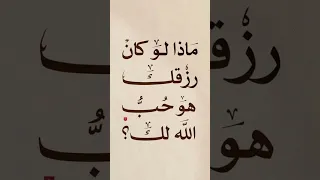 مَاذا لَوْ كانَ
رزْقكَ
هوَ حُبُّ
اللَّه لكَ؟